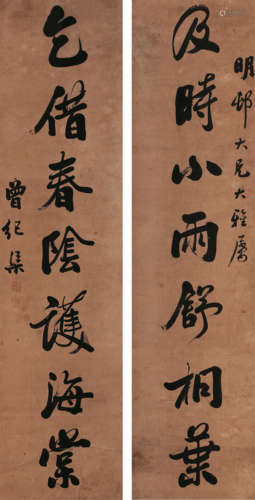 明邨大兄大雅屬
及時小雨舒桐葉
乞借春陰護海棠
曾紀渠